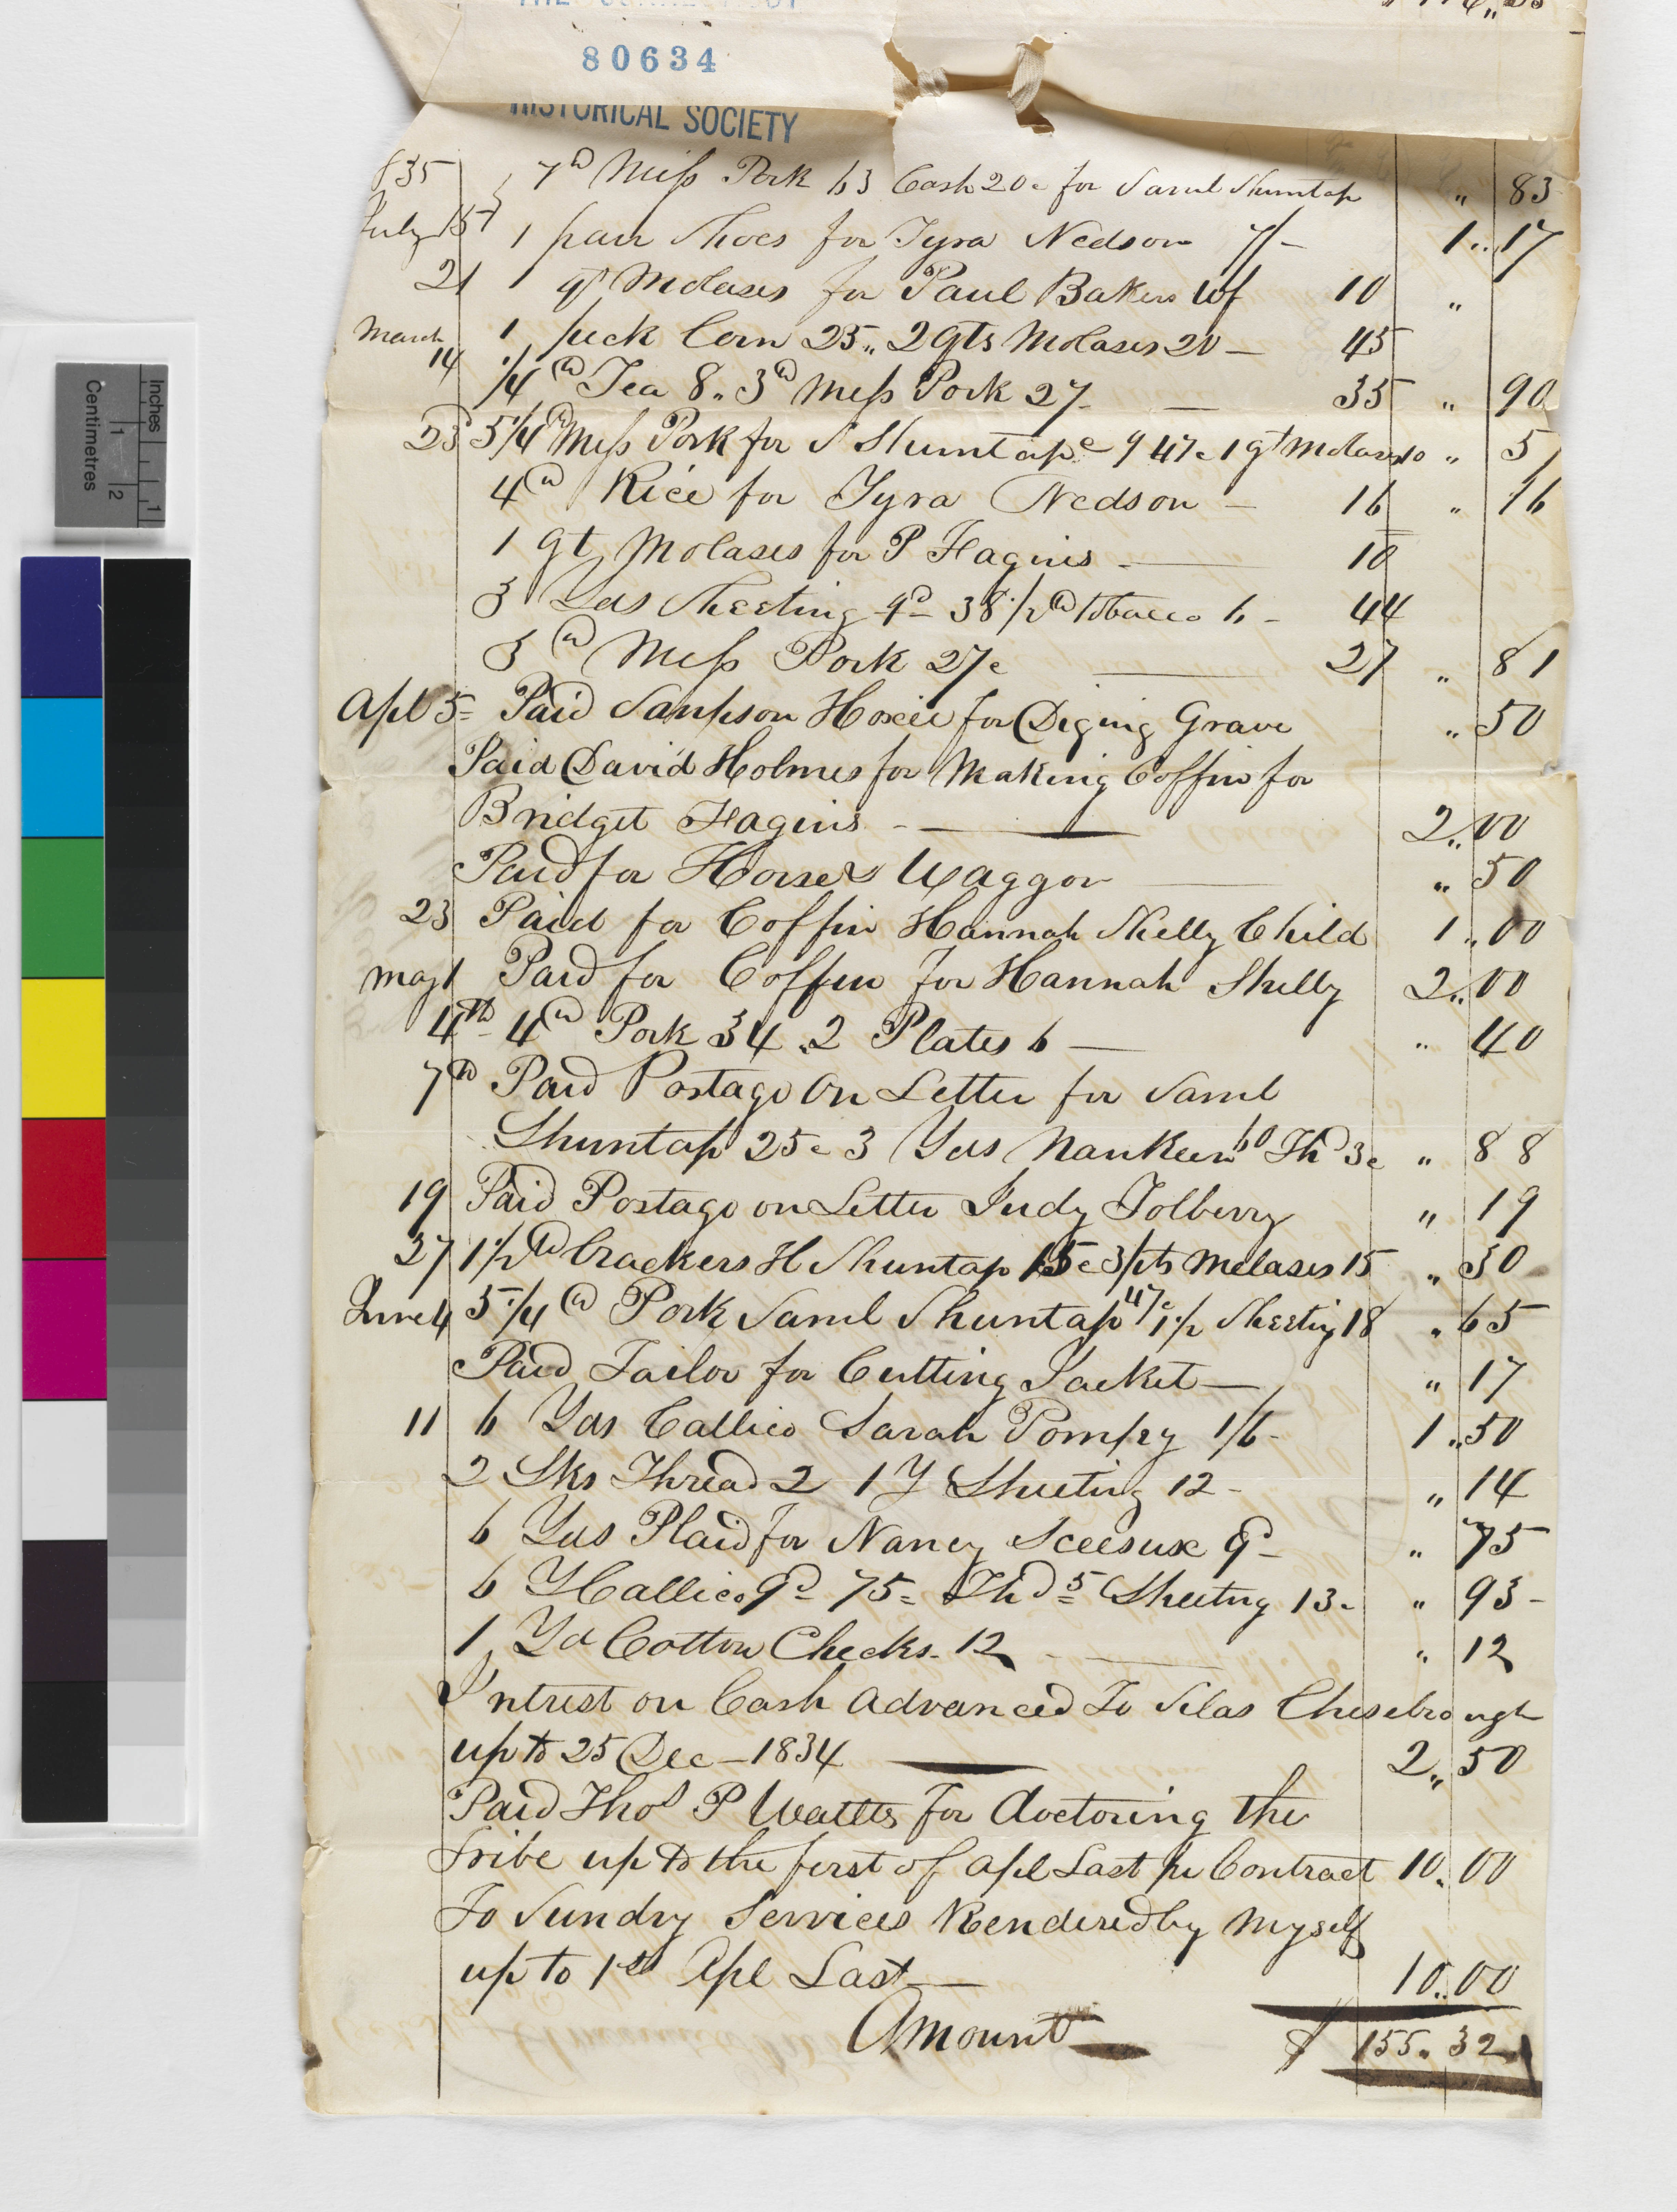 80634
HISTORICAL SOCIETY
835 7 lb Mess Pork 63 Cash 20c for Saml Shuntap " 83
July 15 1 pair Shoes for Tyra Nedson 7/- 1.. 17
21 1 qt Molases for Paul Bakers Wf 10 "
March 1 peck Corn 25,, 2 Qts Molases 20 — 45
14 1/4 lb Tea 8,, 3 lb Mess Pork 27 — 35 " 90
23 5 1/4 lb Mess Pork for S Shuntap 47c 1 qt Molases 10 " 57
4 lb Rice for Tyra Nedson — 16 " 16
1 qt Molases for P Fagins — 10
3 Yds Sheeting 9d 38 1/2 lb tobacco 6 — 44
3 lb Mess Pork 27c — 27 " 81
Apl 5 Paid Sampson Hoxie for Diging Grave " 50
Paid David Holmes for Making Coffin for
Bridget Fagins — 2.. 00
Paid for Horse & Waggon — " 50
23 Paid for Coffin Hannah Shelly Child 1.. 00
May 1 Paid for Coffin for Hannah Shelly 2.. 00
4th 4 lb Pork 34 .2 Plates 6 — " 40
7th Paid Postage On Letter for Saml
Shuntap 25c 3 Yds Nankeen 60 Thd 3c " 88
19 Paid Postage on Letter Judy Tolberry " 19
27 1 1/2 lb Crackers H Shuntap 15c 3 pts Melases 15 " 30
June 4 5 1/4 lb Pork Saml Shuntap 47c 1 1/2 Sheeting 18 " 65
Paid Tailor for Cutting Jacket — " 17
11 6 Yds Callico Sarah Pompey 1/6 - 1.. 50
2 Sks Thread 2 1 Y Sheeting 12 - " 14
6 Yds Plaid for Nancy 9d - " 75
6 Y Callico 9d 75 Thd 5 Sheetng 13c " 93 -
1 Yd Cotton Checks. 12 — " 12
Intrest on Cash advanced To Silas Chesebrough
up to 25 Dec — 1834 — 2,, 50
Paid Thos P Wattles for doctoring the
tribe up to the first of Apl Last pr Contract 10. 00
To Sundry Services Rendered by Myself
up to 1st Apl Last — 10.. 00
Amount — $ 155. 32